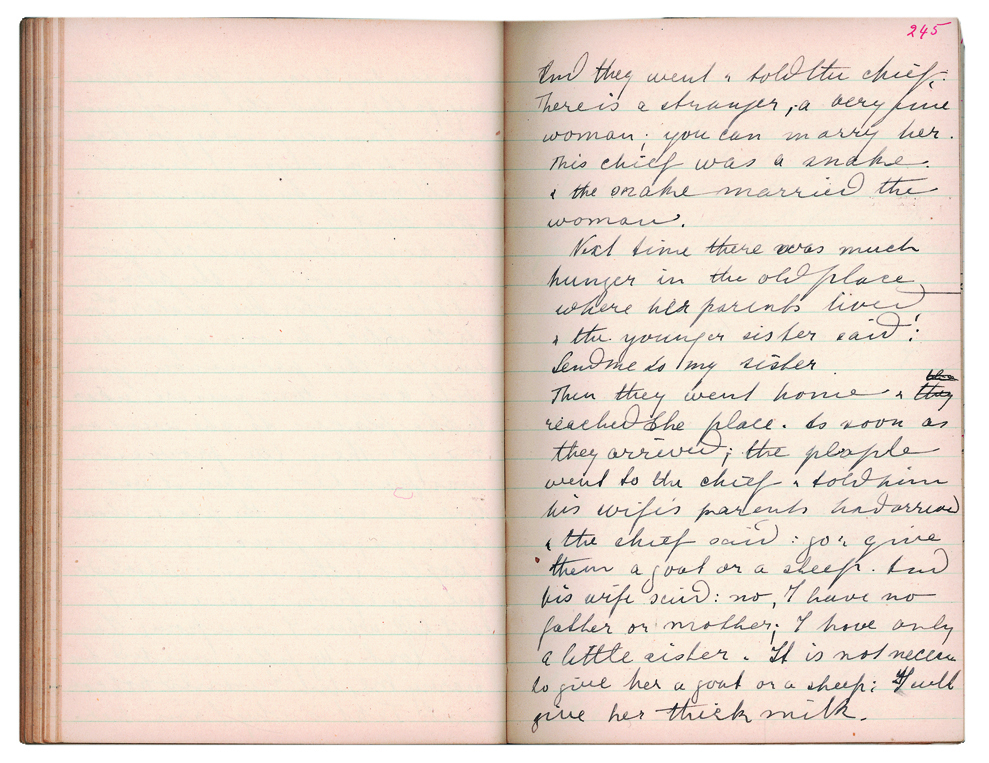 245
And they went & told the chief:
There is a stranger, a very fine
woman; you can marry her.
This chief was a snake.
& the snake married the
woman.
Next time there was much
hunger in the old place,
where her parents lived
& the younger sister said:
Send me to my sister
Then they went home & they
reached the place. As soon as
they arrived; the people
went to the chief & told him
his wife's parents had arrived
& the chief said: go & give
them a goat or a sheep. And
his wife said: no, I have no
father or mother; I have only
a little sister. It is not necess
to give her a goat or a sheep; I will
give her thick milk.